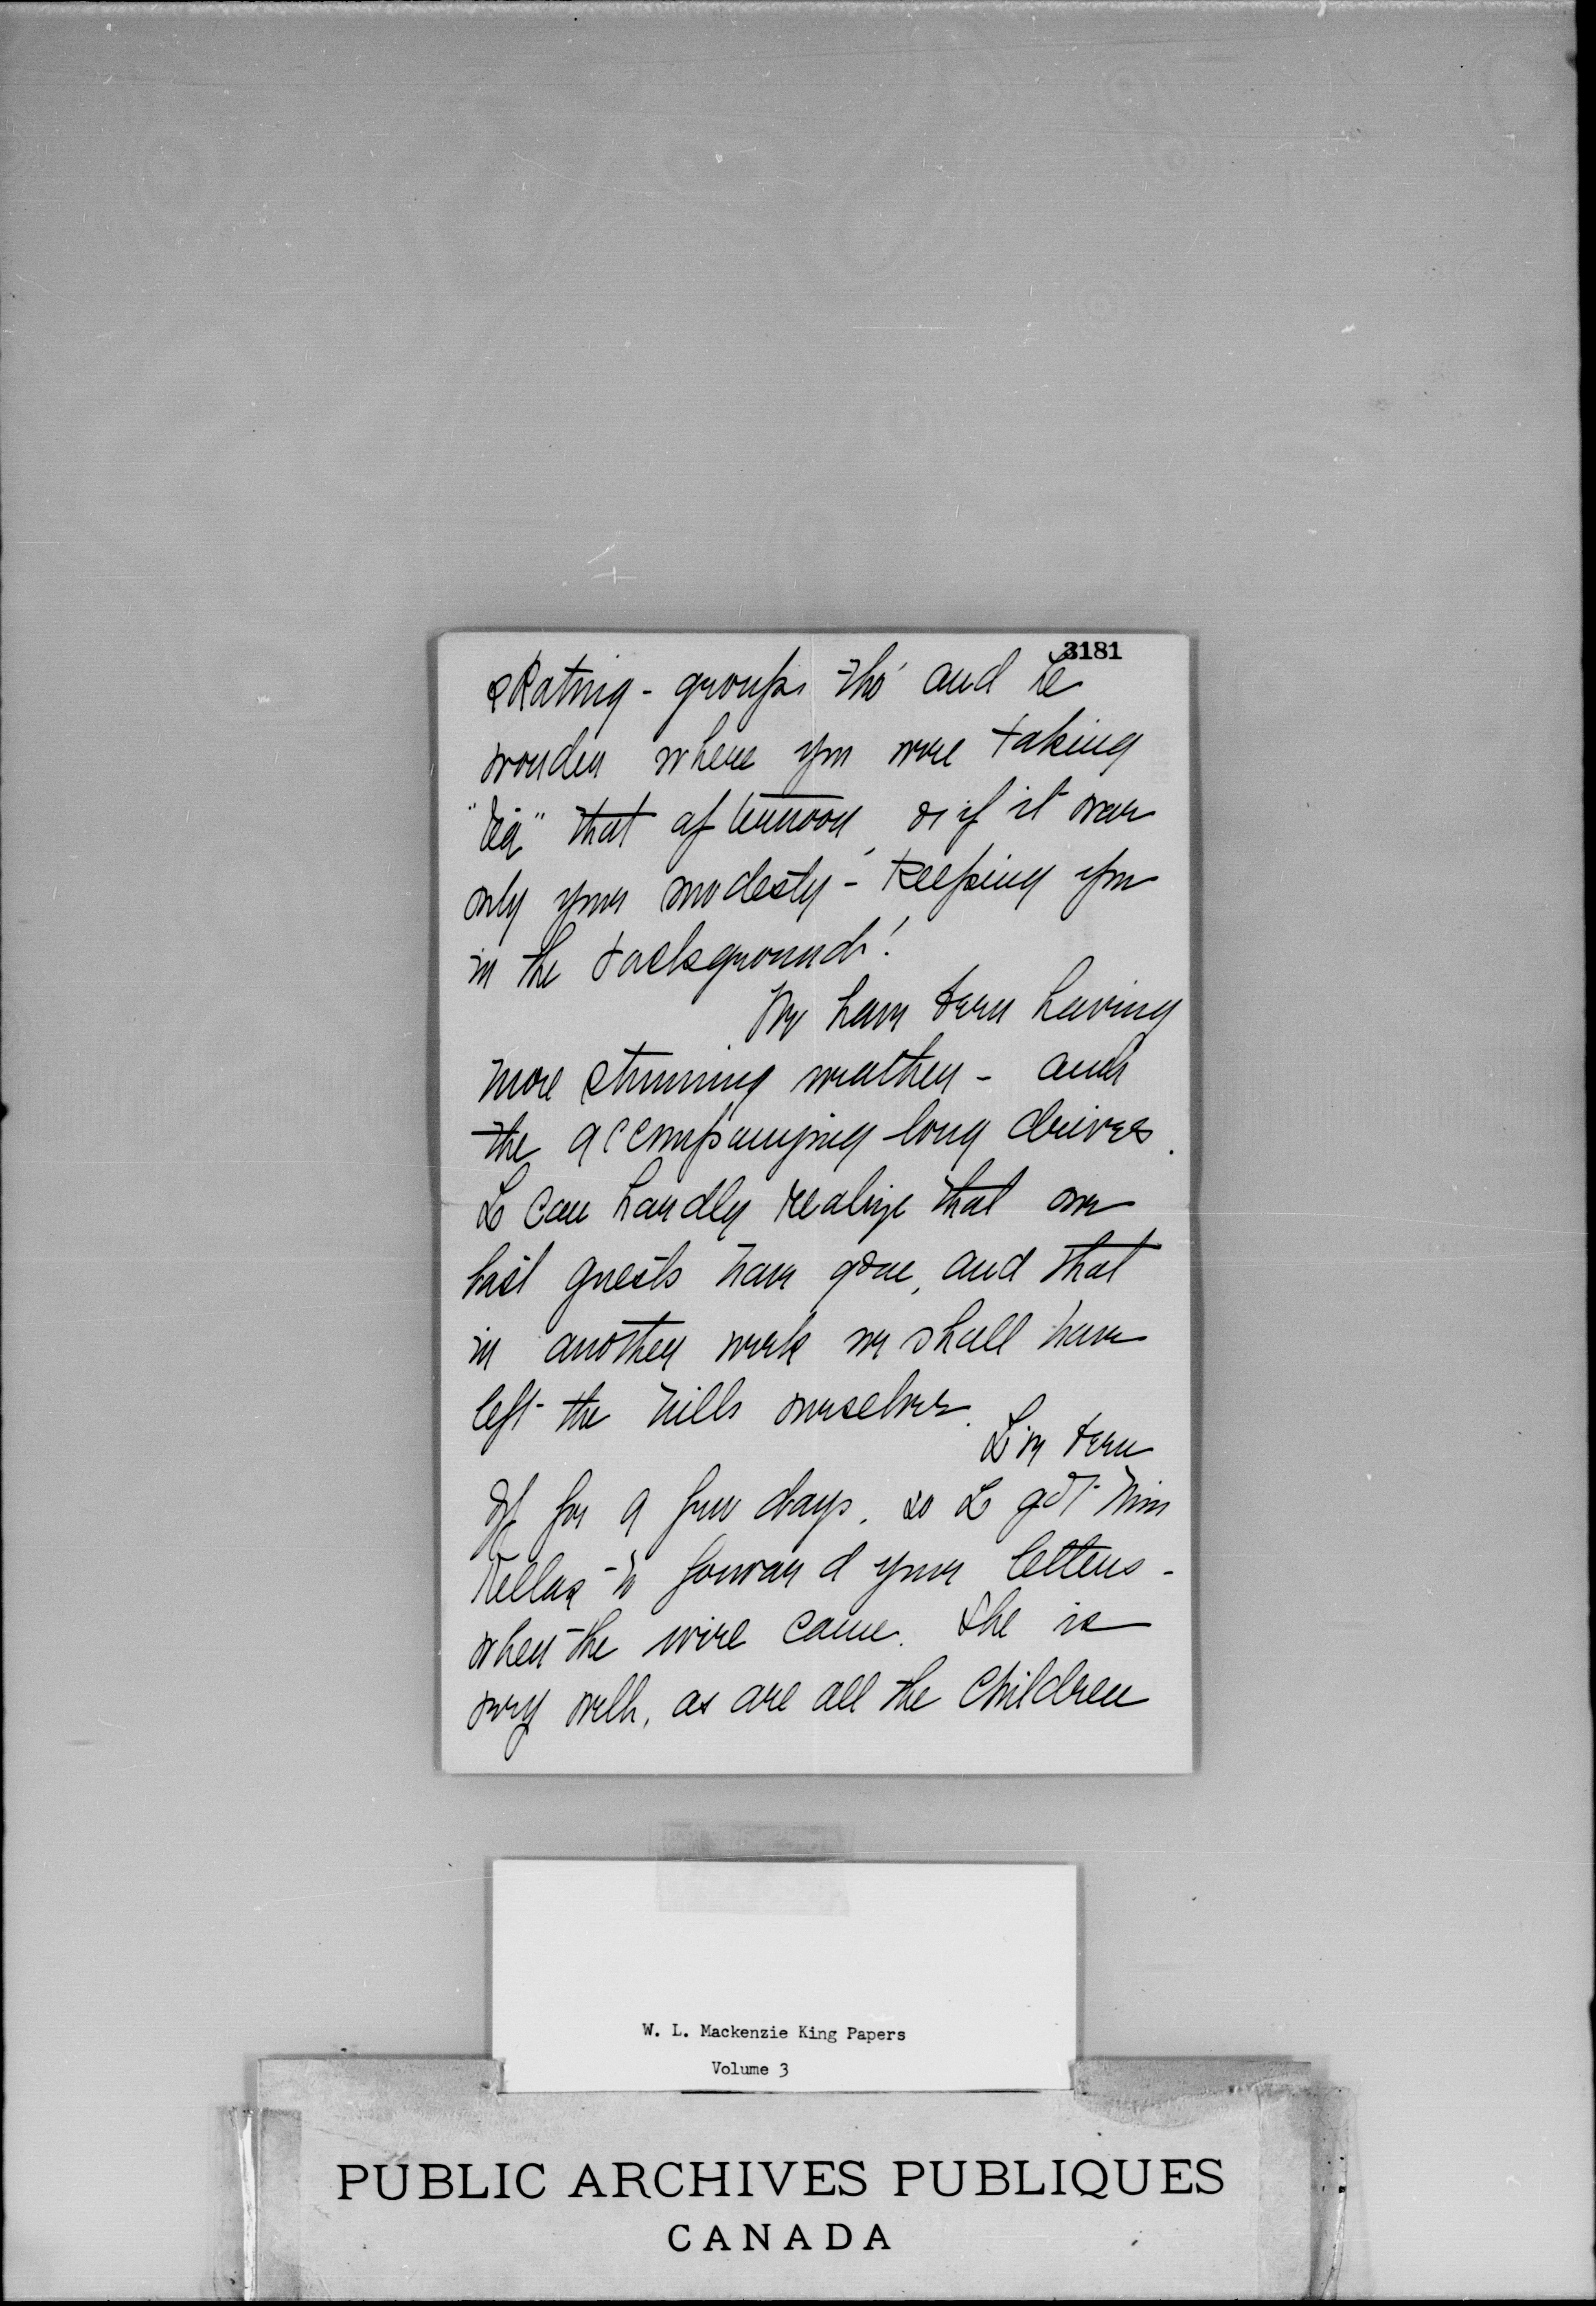 3181
skating-groups tho' and
wonder where you were taking
"tea" that afternoon, or if it was
only your modesty - keeping you
in the background!
We have been having
more stunning weather - and
the accompanying long drives.
I can hardly realize that our
last guests have gone, and that
in another week we shall have
left the hills ourselves.
I've been
off for a few days, so I got Miss
to forward your letters -
when the wire came. She is
very well, as are all the children
W. L. Mackenzie King Papers
Volume 3
PUBLIC ARCHIVES PUBLIQUES
CANADA